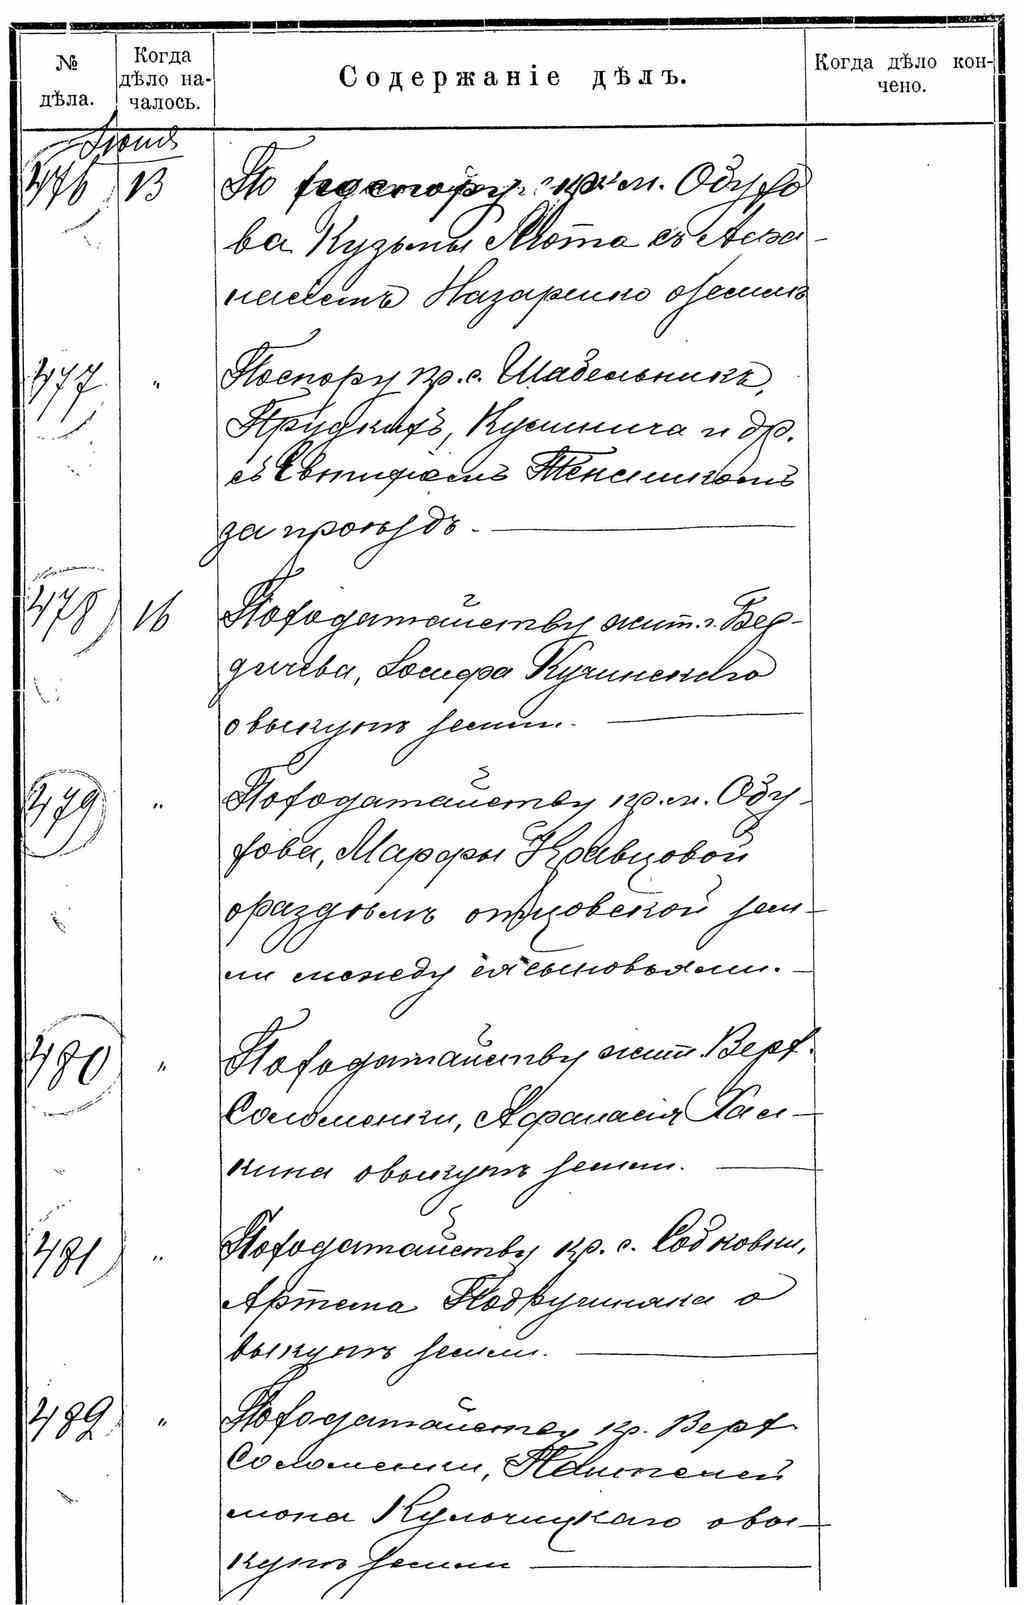 № дѣла.
Когда дѣло на-
чалось.
Содержаніе дѣлъ.
Когда дѣло кон-
чено.
Іюня
476 13 По спору кр. м. Обухо
ва Кузьмы Люта съ Афа-
насіемъ Назаренко о землѣ
477 " По спору кр. с. Шабельникъ,
Прудкихъ, Кушнича и др.
съ Евтифіемъ
за проѣздъ.
478 16 По ходатайству жит. г. Бер-
дичева, Іосифа Кучинскаго
о выкупѣ земли.
479 " По ходатайству кр. м. Обу-
хова, Марфы Кравцовой
о раздѣлѣ отцовской зем-
ли между ея сыновьями.
480 " По ходатайству жит. Верх.
Соломенки, Афанасія Хал-
кина о выкупѣ земли.
481 " По ходатайству кр. с. Собковки,
Артема Подручиняка о
выкупѣ земли.
482 " По ходатайству кр. Верх.
Соломенки, Пантелей
мона Кульчицкаго о вы-
купѣ земли